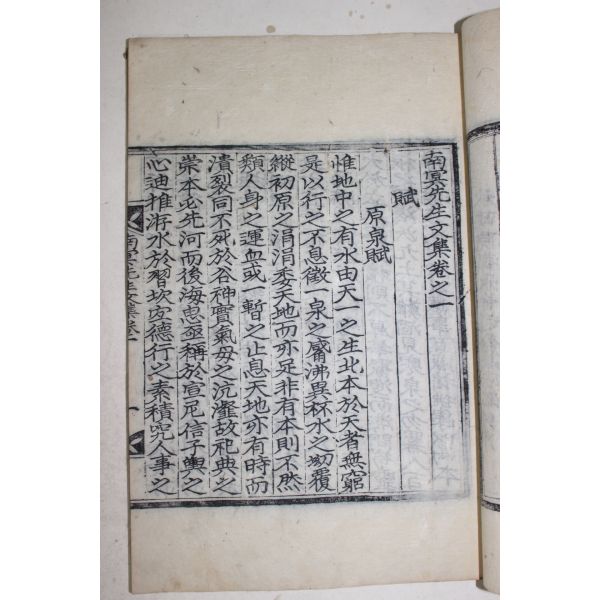 南冥先生文集卷之一
賦
原泉賦
惟地中之有水由天一之生北本於天者無窮
是以行之不息徵一泉之觱沸異杯水之坳覆
縱初原之涓涓委天地而亦足非有本則不然
類人身之運血或一暫之止息天地亦有時而
潰裂同不死於谷神實氣母之沆瀣故祀典之
崇本必先河而後海思亟稱於宣尼信子輿之
心迪推洊水於習坎宜德行之素積究人事之
南冥先生文集卷一
一